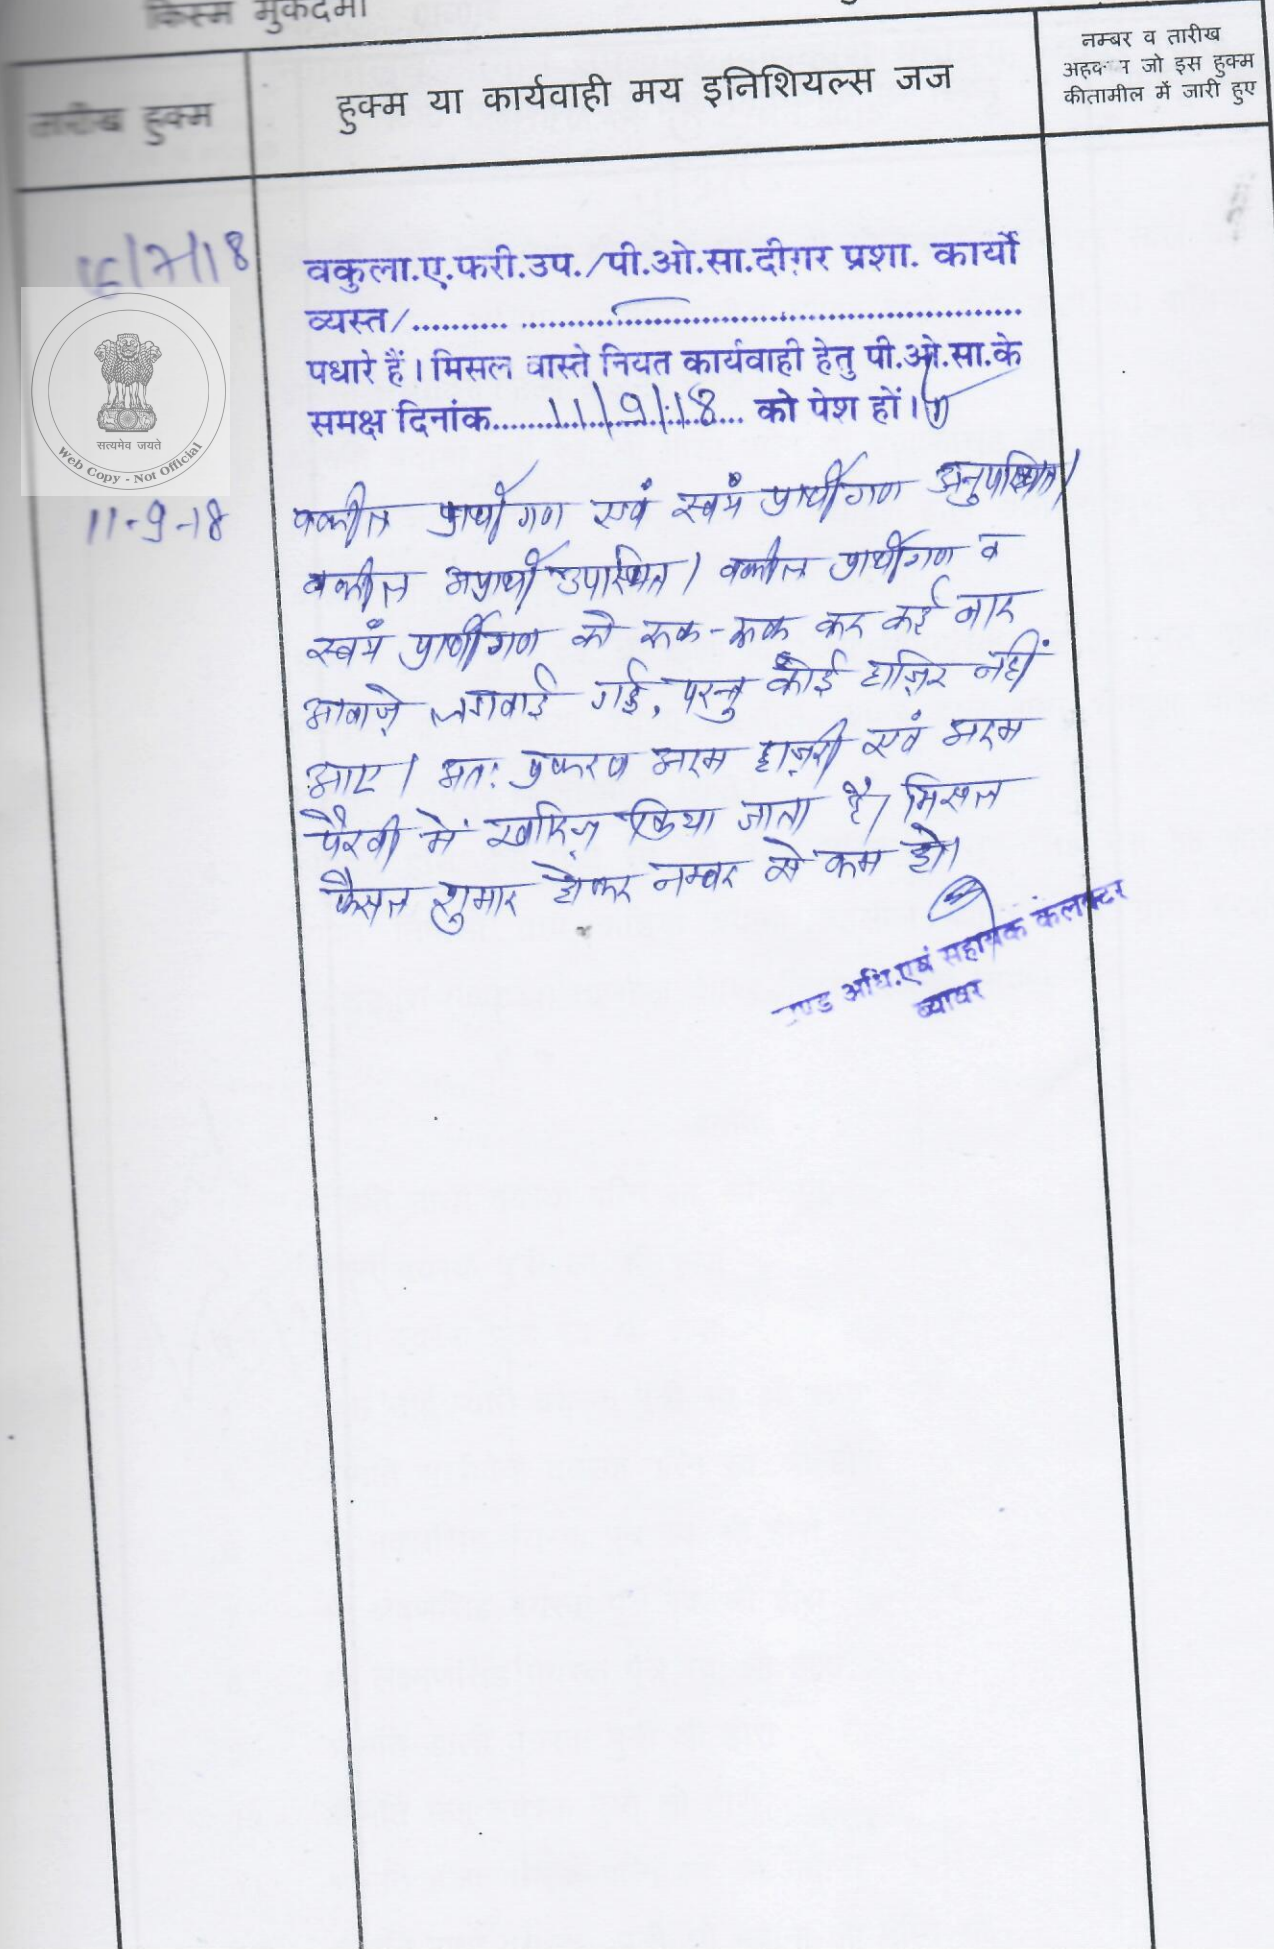 किस्म मुकदमा
तारीख हुक्म
हुक्म या कार्यवाही मय इनिशियल्स जज
नम्बर व तारीख
अहकाम जो इस हुक्म
की तामील में जारी हुए
16/7/18
वकुला.ए.फरी.उप./पी.ओ.सा.दीग़र प्रशा. कार्यो
व्यस्त/.......... ..........................................................
पधारे हैं। मिसल वास्ते नियत कार्यवाही हेतु पी.ओ.सा.के
समक्ष दिनांक.....11/9/18... को पेश हों।
सत्यमेव जयते
Web Copy - Not Official
11-9-18
वकील प्रार्थीगण एवं स्वयं प्रार्थीगण अनुपस्थित।
वकील अप्रार्थी उपस्थित। वकील प्रार्थीगण व
स्वयं प्रार्थीगण को रुक-रुक कर कई बार
आवाज़े लगवाई गई, परन्तु कोई हाज़िर नहीं
आए। अतः प्रकरण अदम हाज़री एवं अदम
पैरवी में खारिज़ किया जाता है। मिसल
फैसल शुमार होकर नम्बर से कम हो।
ण्ड अधि.एवं सहायक कलक्टर
ब्यावर